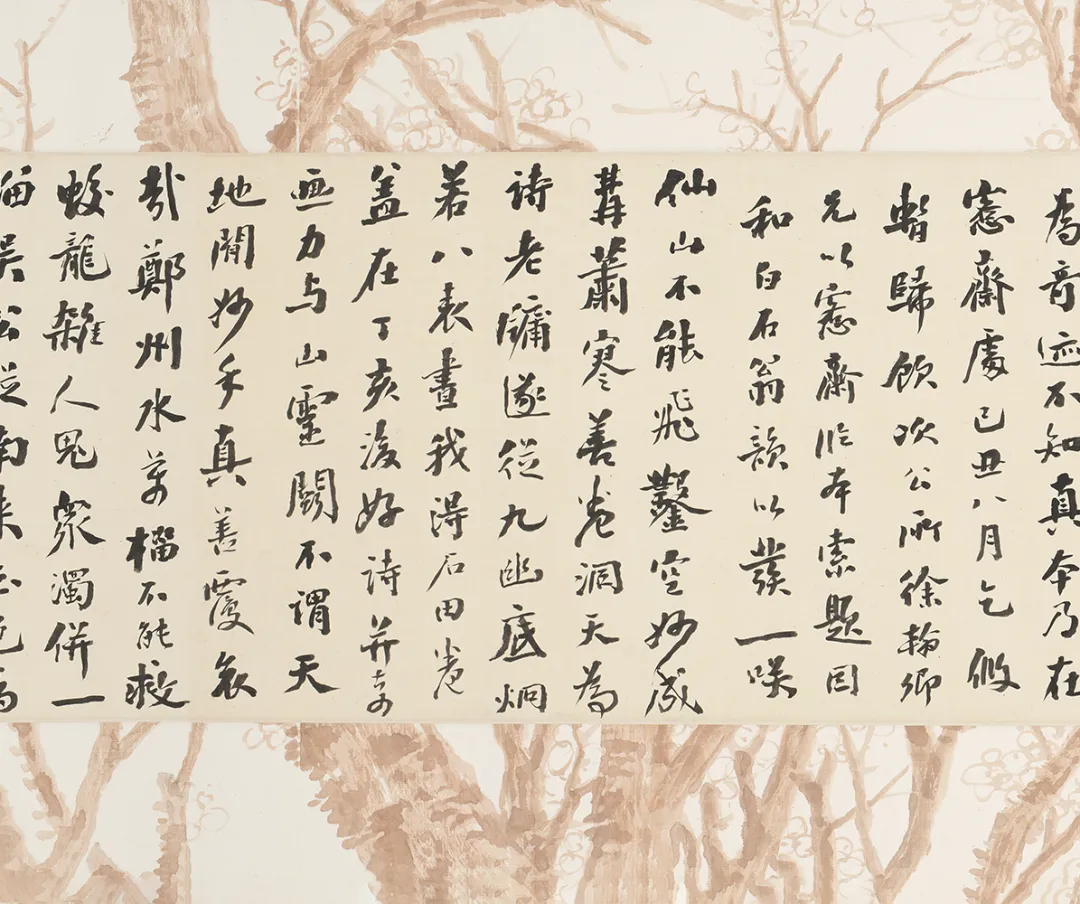 為奇迹不知真本乃在
愙齋處己丑八月乞假
暫歸飲次公所徐翰卿
兄以愙齋臨本索題因
和白石翁韻以發一咲
仙山不能飛鑿空妙成
冓蕭寒善卷洞天為
詩老牖遂從九幽底炯
若八表晝我得石田卷
蓋在丁亥後好詩并奇
畫力与山靈鬭不謂天
地閒妙手真善覆哀
哉鄭州水不能救
蛟龍雜人鬼眾濁併一
吳公從南来色為